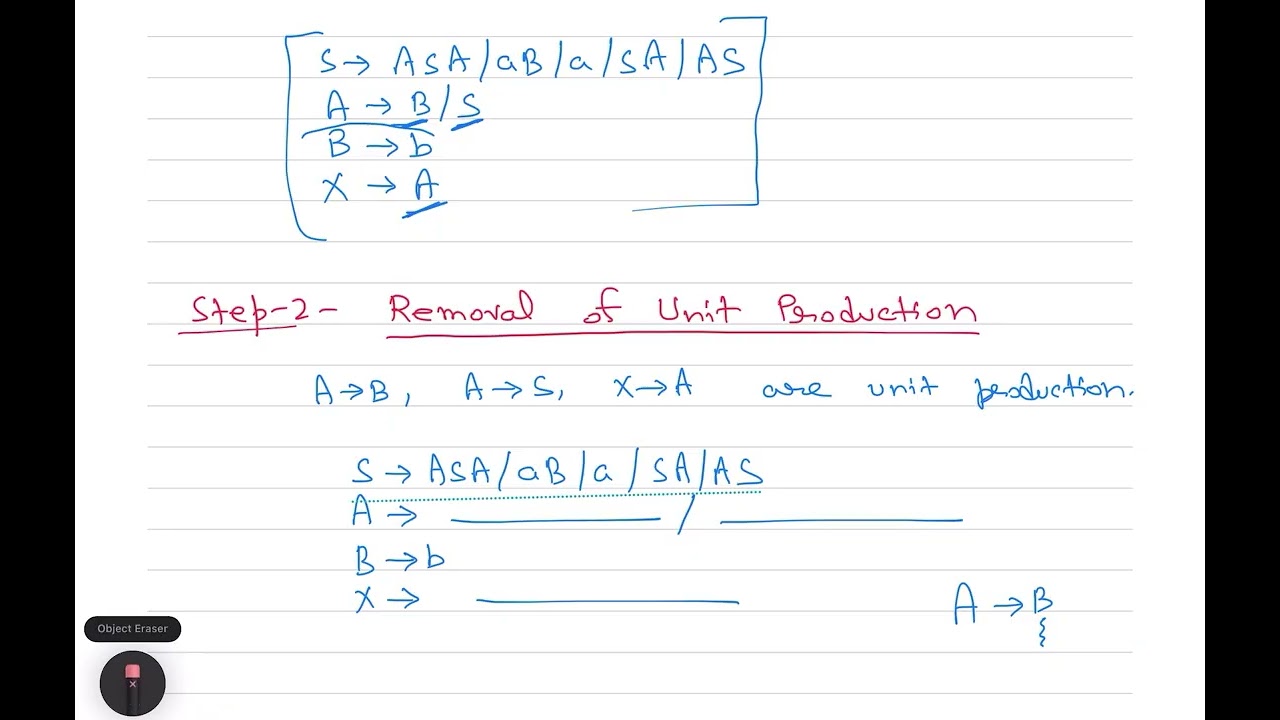 S → ASA/aB/a/SA/AS
A → B/S
B → b
X → A
Step-2- Removal of Unit Production
A→B, A→S, X→A are unit production.
S → ASA/aB/a/SA/AS
A → ______ / ______
B → b
X → ______
A → B
Object Eraser